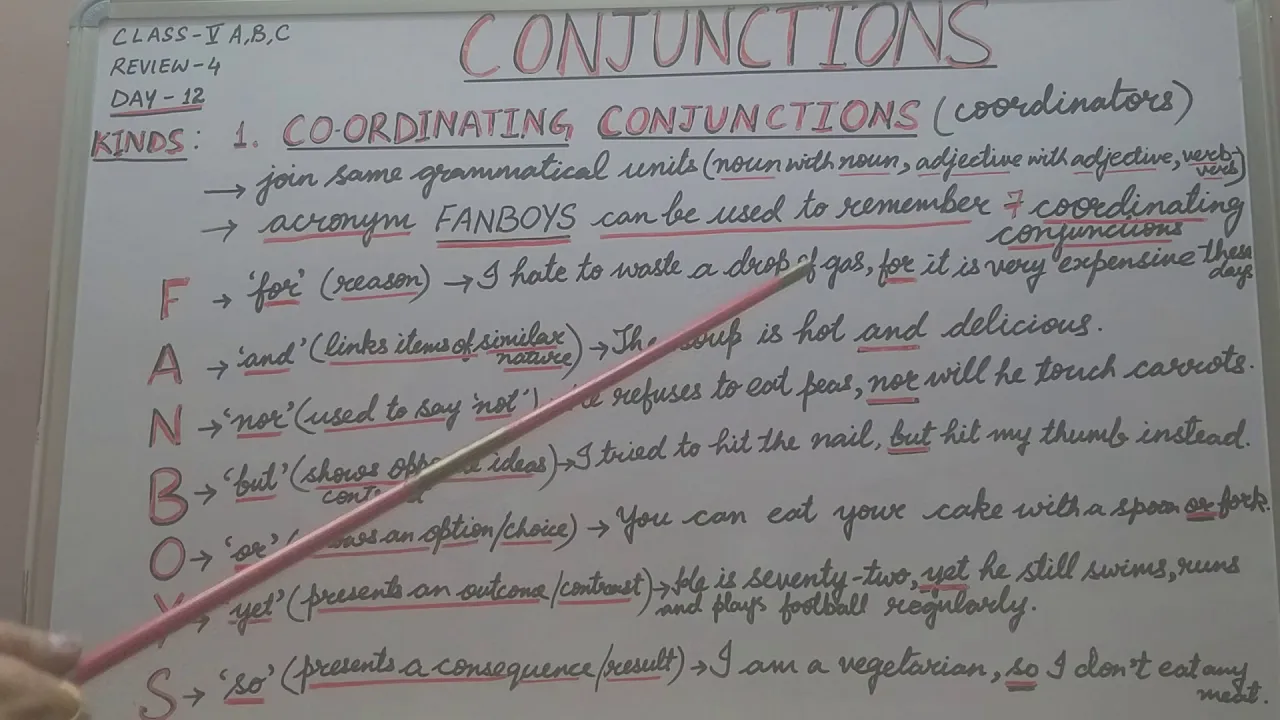 CLASS-V A,B,C
REVIEW-4
DAY-12
CONJUNCTIONS
KINDS: 1. CO-ORDINATING CONJUNCTIONS (coordinators)
→ join same grammatical units (noun with noun, adjective with adjective, verb-verb)
→ acronym FANBOYS can be used to remember 7 coordinating conjunctions
F → 'for' (reason) → I hate to waste a drop of gas, for it is very expensive these days
A → 'and' (links items of similar nature) → The soup is hot and delicious.
N → 'nor' (used to say 'not') refuses to eat peas, nor will he touch carrots.
B → 'but' (shows ideas) → I tried to hit the nail, but hit my thumb instead.
O → 'or' ( an option/choice) → You can eat your cake with a spoon or fork.
Y → 'yet' (presents an outcome/contrast) → He is seventy-two, yet he still swims, runs and plays football regularly.
S → 'so' (presents a consequence/result) → I am a vegetarian, so I don't eat any meat.